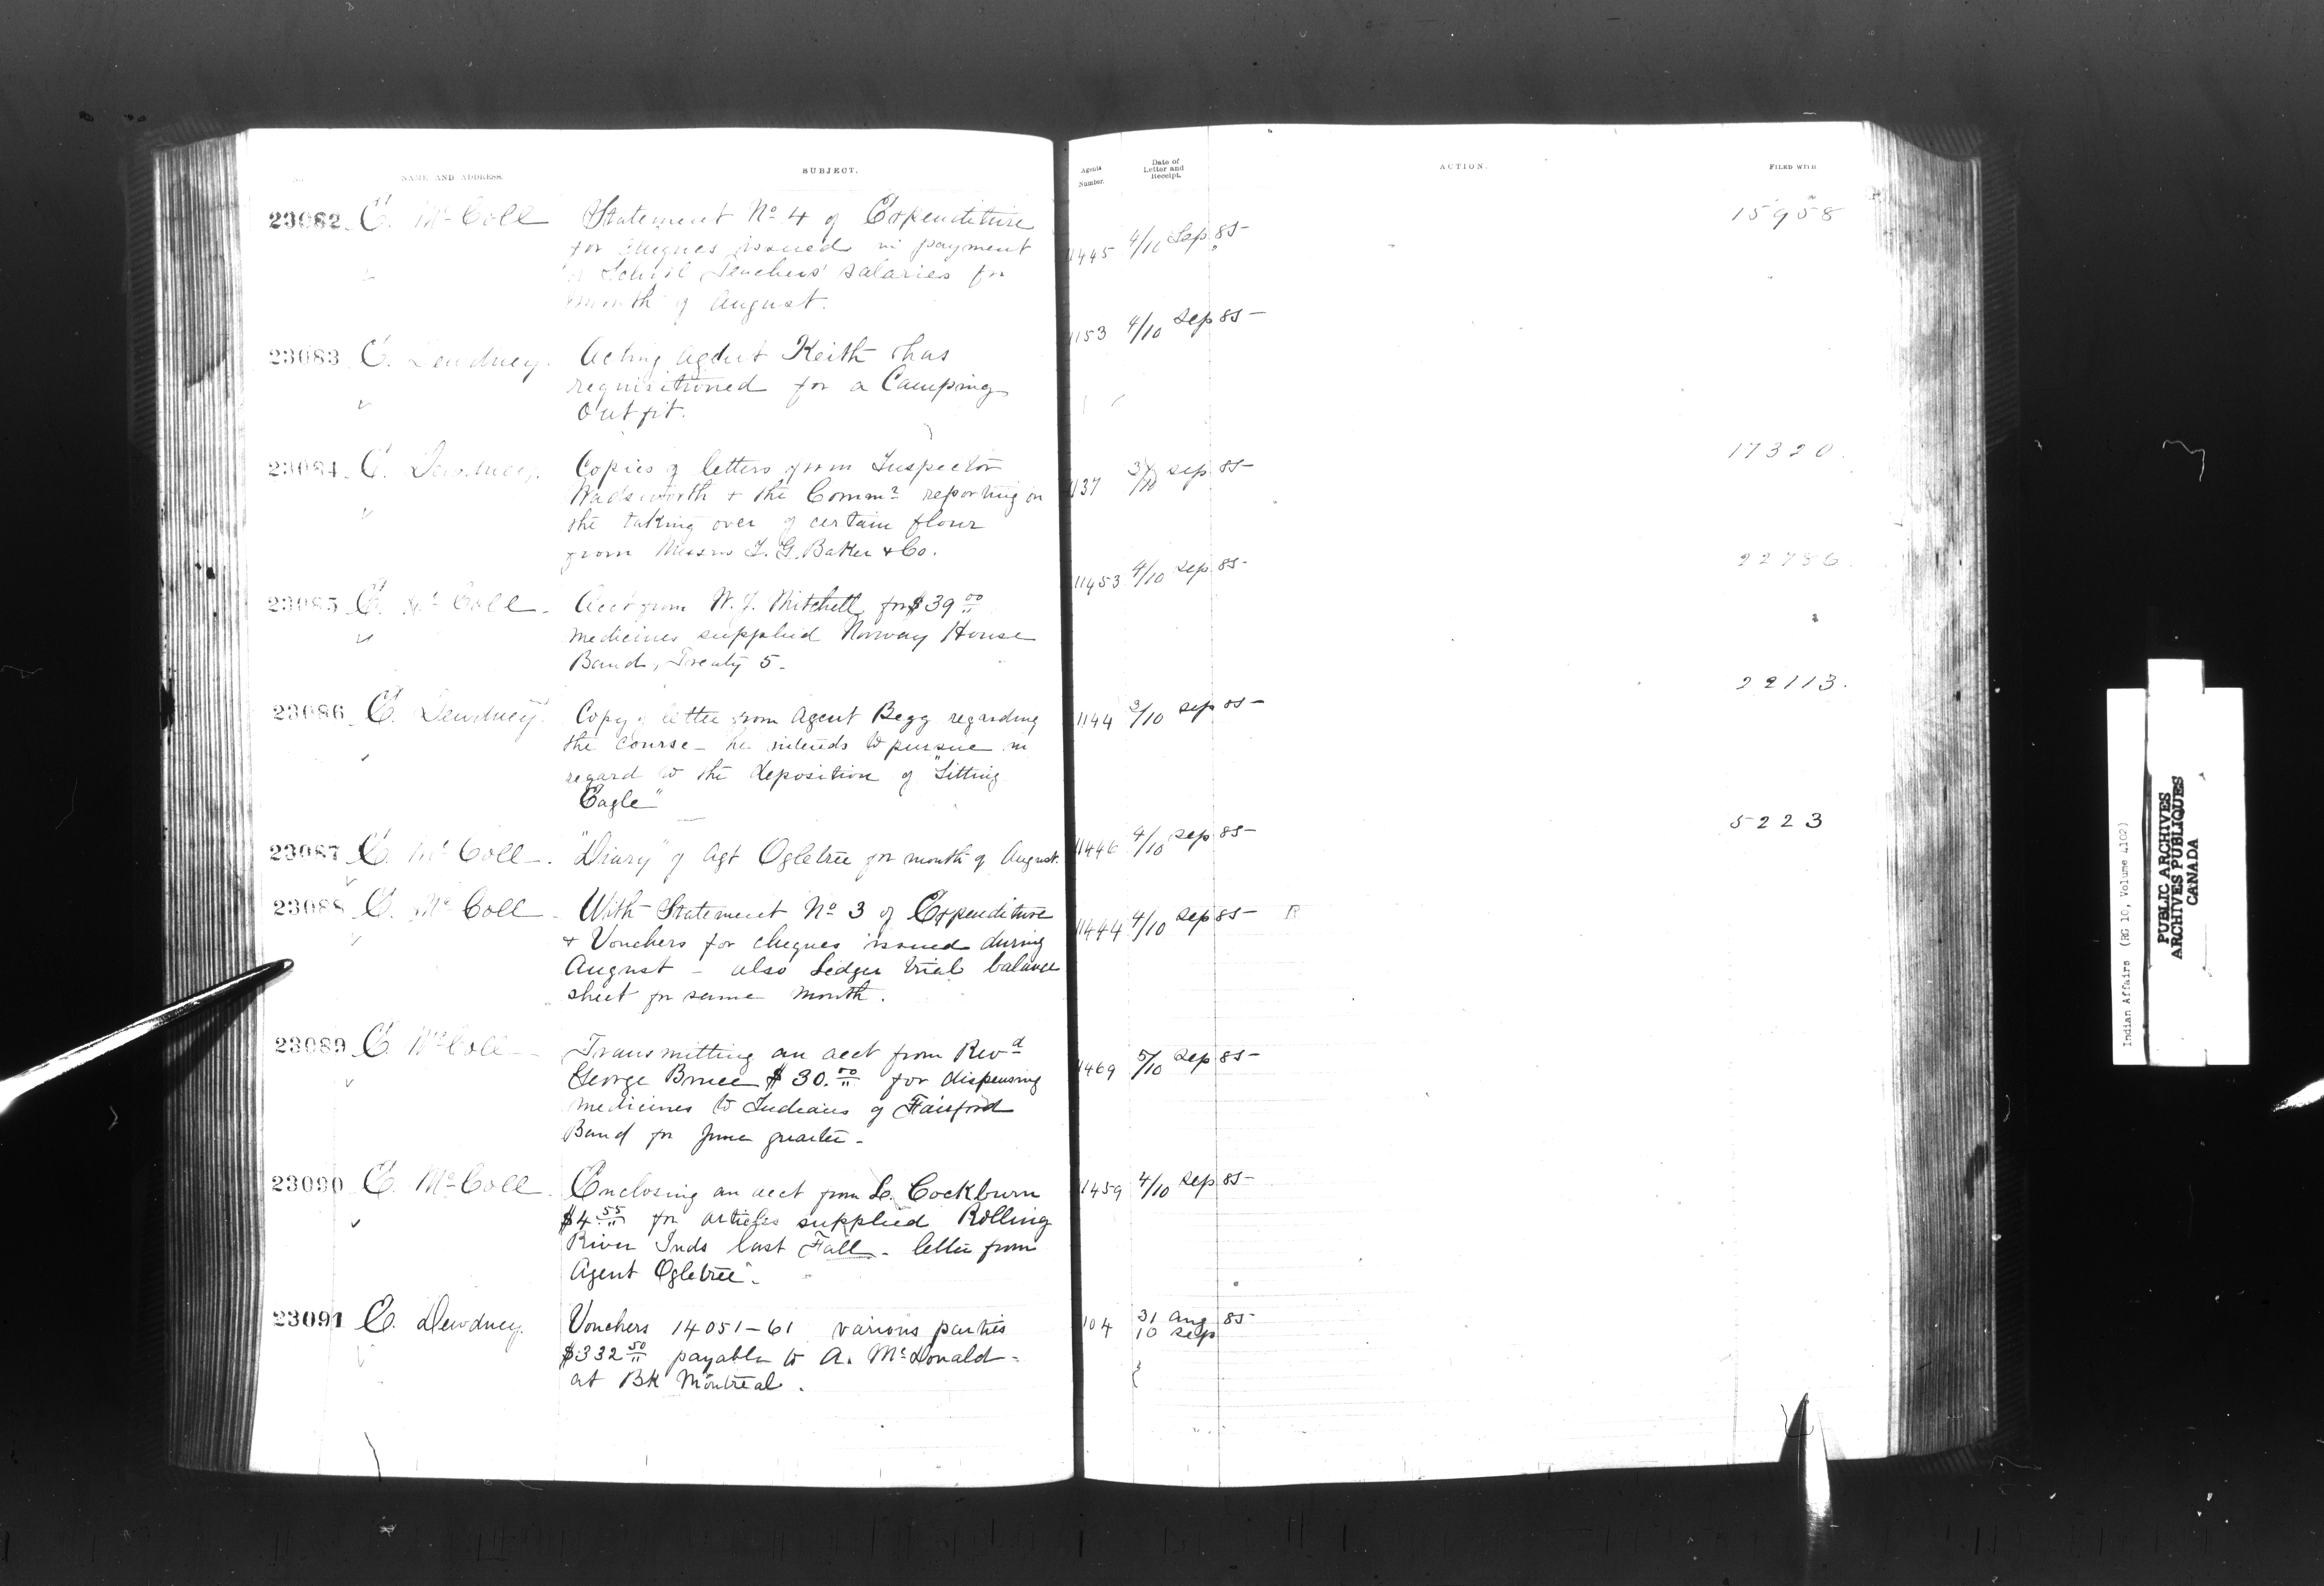 NAME AND ADDRESS.
SUBJECT.
Agents Number.
Date of Letter and Receipt.
ACTION.
FILED WITH
23082 E. McColl
Statement No 4 of Expenditure
for cheques issued in payment
of School Teachers' salaries for
month of August.
11445 4/10 Sep 85
15958
23083 E. Dewdney.
Acting Agent Keith has
requisitioned for a Camping
Outfit.
1153 4/10 Sep 85
23084 E. Dewdney.
Copies of letters from Inspector
Wadsworth + the Commr reporting on
the taking over of certain flour
from Messrs I. G. Baker & Co.
1137 3/10 Sep 85
17320.
23085 E. McColl.
Acct from W. J. Mitchell for $39 00
medicines supplied Norway House
Band, Treaty 5.
11453 4/10 Sep 85
22786.
23086 E. Dewdney.
Copy of letter from Agent Begg regarding
the course he intends to pursue in
regard to the deposition of "Sitting
Eagle"
1144 3/10 Sep 85
22113.
23087 E. McColl.
"Diary" of Agt Ogletree for month of August.
11446 4/10 Sep 85
5223
23088 E. McColl
With Statement No 3 of Expenditure
+ Vouchers for cheques issued during
August - also Ledger trial balance
sheet for same month.
11444 4/10 Sep 85 R
23089 E. McColl
Transmitting an acct from Revd
George Bruce $30.00 for dispensing
medicines to Indians of Fairford
Band for June quarter -
11469 5/10 Sep 85
23090 E. McColl
Enclosing an acct from L. Cockburn
$4 55 for articles supplied Rolling
River Inds last Fall - letter from
Agent Ogletree.
11459 4/10 Sep 85
23091 E. Dewdney.
Vouchers 14051-61 various parties
$332 50 payable to A. McDonald -
at BK Montreal.
1104 31 Aug 85
10 Sep
Indian Affairs (RG 10, Volume 4102)
PUBLIC ARCHIVES
ARCHIVES PUBLIQUES
CANADA